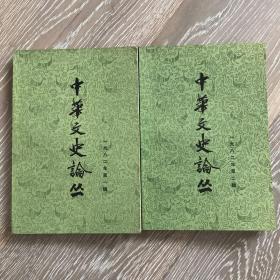 中華文史論丛
一九八二年第一辑
中華文史論丛
一九八二年第二辑